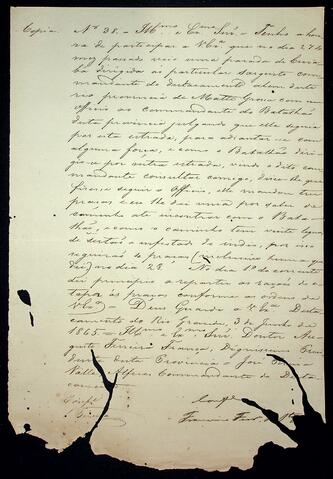 Copia Nº 38. Illmo Exmo Snr. Tenho a hon
ra de participar a VExa que no dia 27 do
mez passado veio uma parada de Cuia
bá dirigida ao particular Sargento com
mandante do destacamento alem deste
rio provincia de Matto Grosso com um
officio ao commandante do Batalhão
desta provincia julgando que elle seguia
por esta estrada, para adiantar-se com
alguma força, e como o Batalhão diri
gio-se por outra estrada, vindo o dito com
mandante consultar comigo, disse-lhe que
fizesse seguir o Officio, elle mandou tres
praças e eu lhe dei uma por saber do
caminho até encontrar com o Bata
lhão, e como o caminho tem vinte legoas
de sertão e infestado de indios, por isso
seguirão 4 praças (inclusive huma que
dei) no dia 28. No dia 1º do corrente
dei principio a repartir as rações de e
tapa às praças conforme as ordens de
VExa. Deos Guarde a VExa Desta
camento do Rio Grande, 3 de Junho de
1865 = Illmo Exmo Snr. Doutor Au
gusto Ferreira França, Digníssimo Presi
dente desta Provincia = José
Valle Alferes Commandante do Desta
camento
Confe